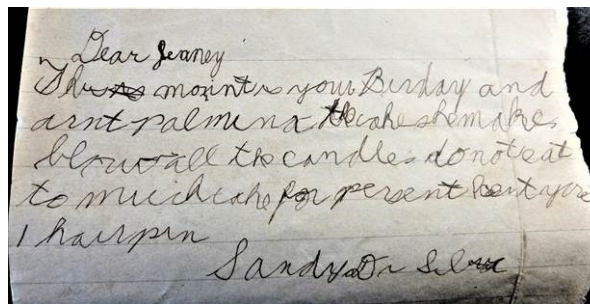 Dear Jenney
This mount is your Birday and
arnt palmina the cake she make
blow all the candles do not eat
to much cake for persent sent you
1 hairpin
Sandy Da Silva